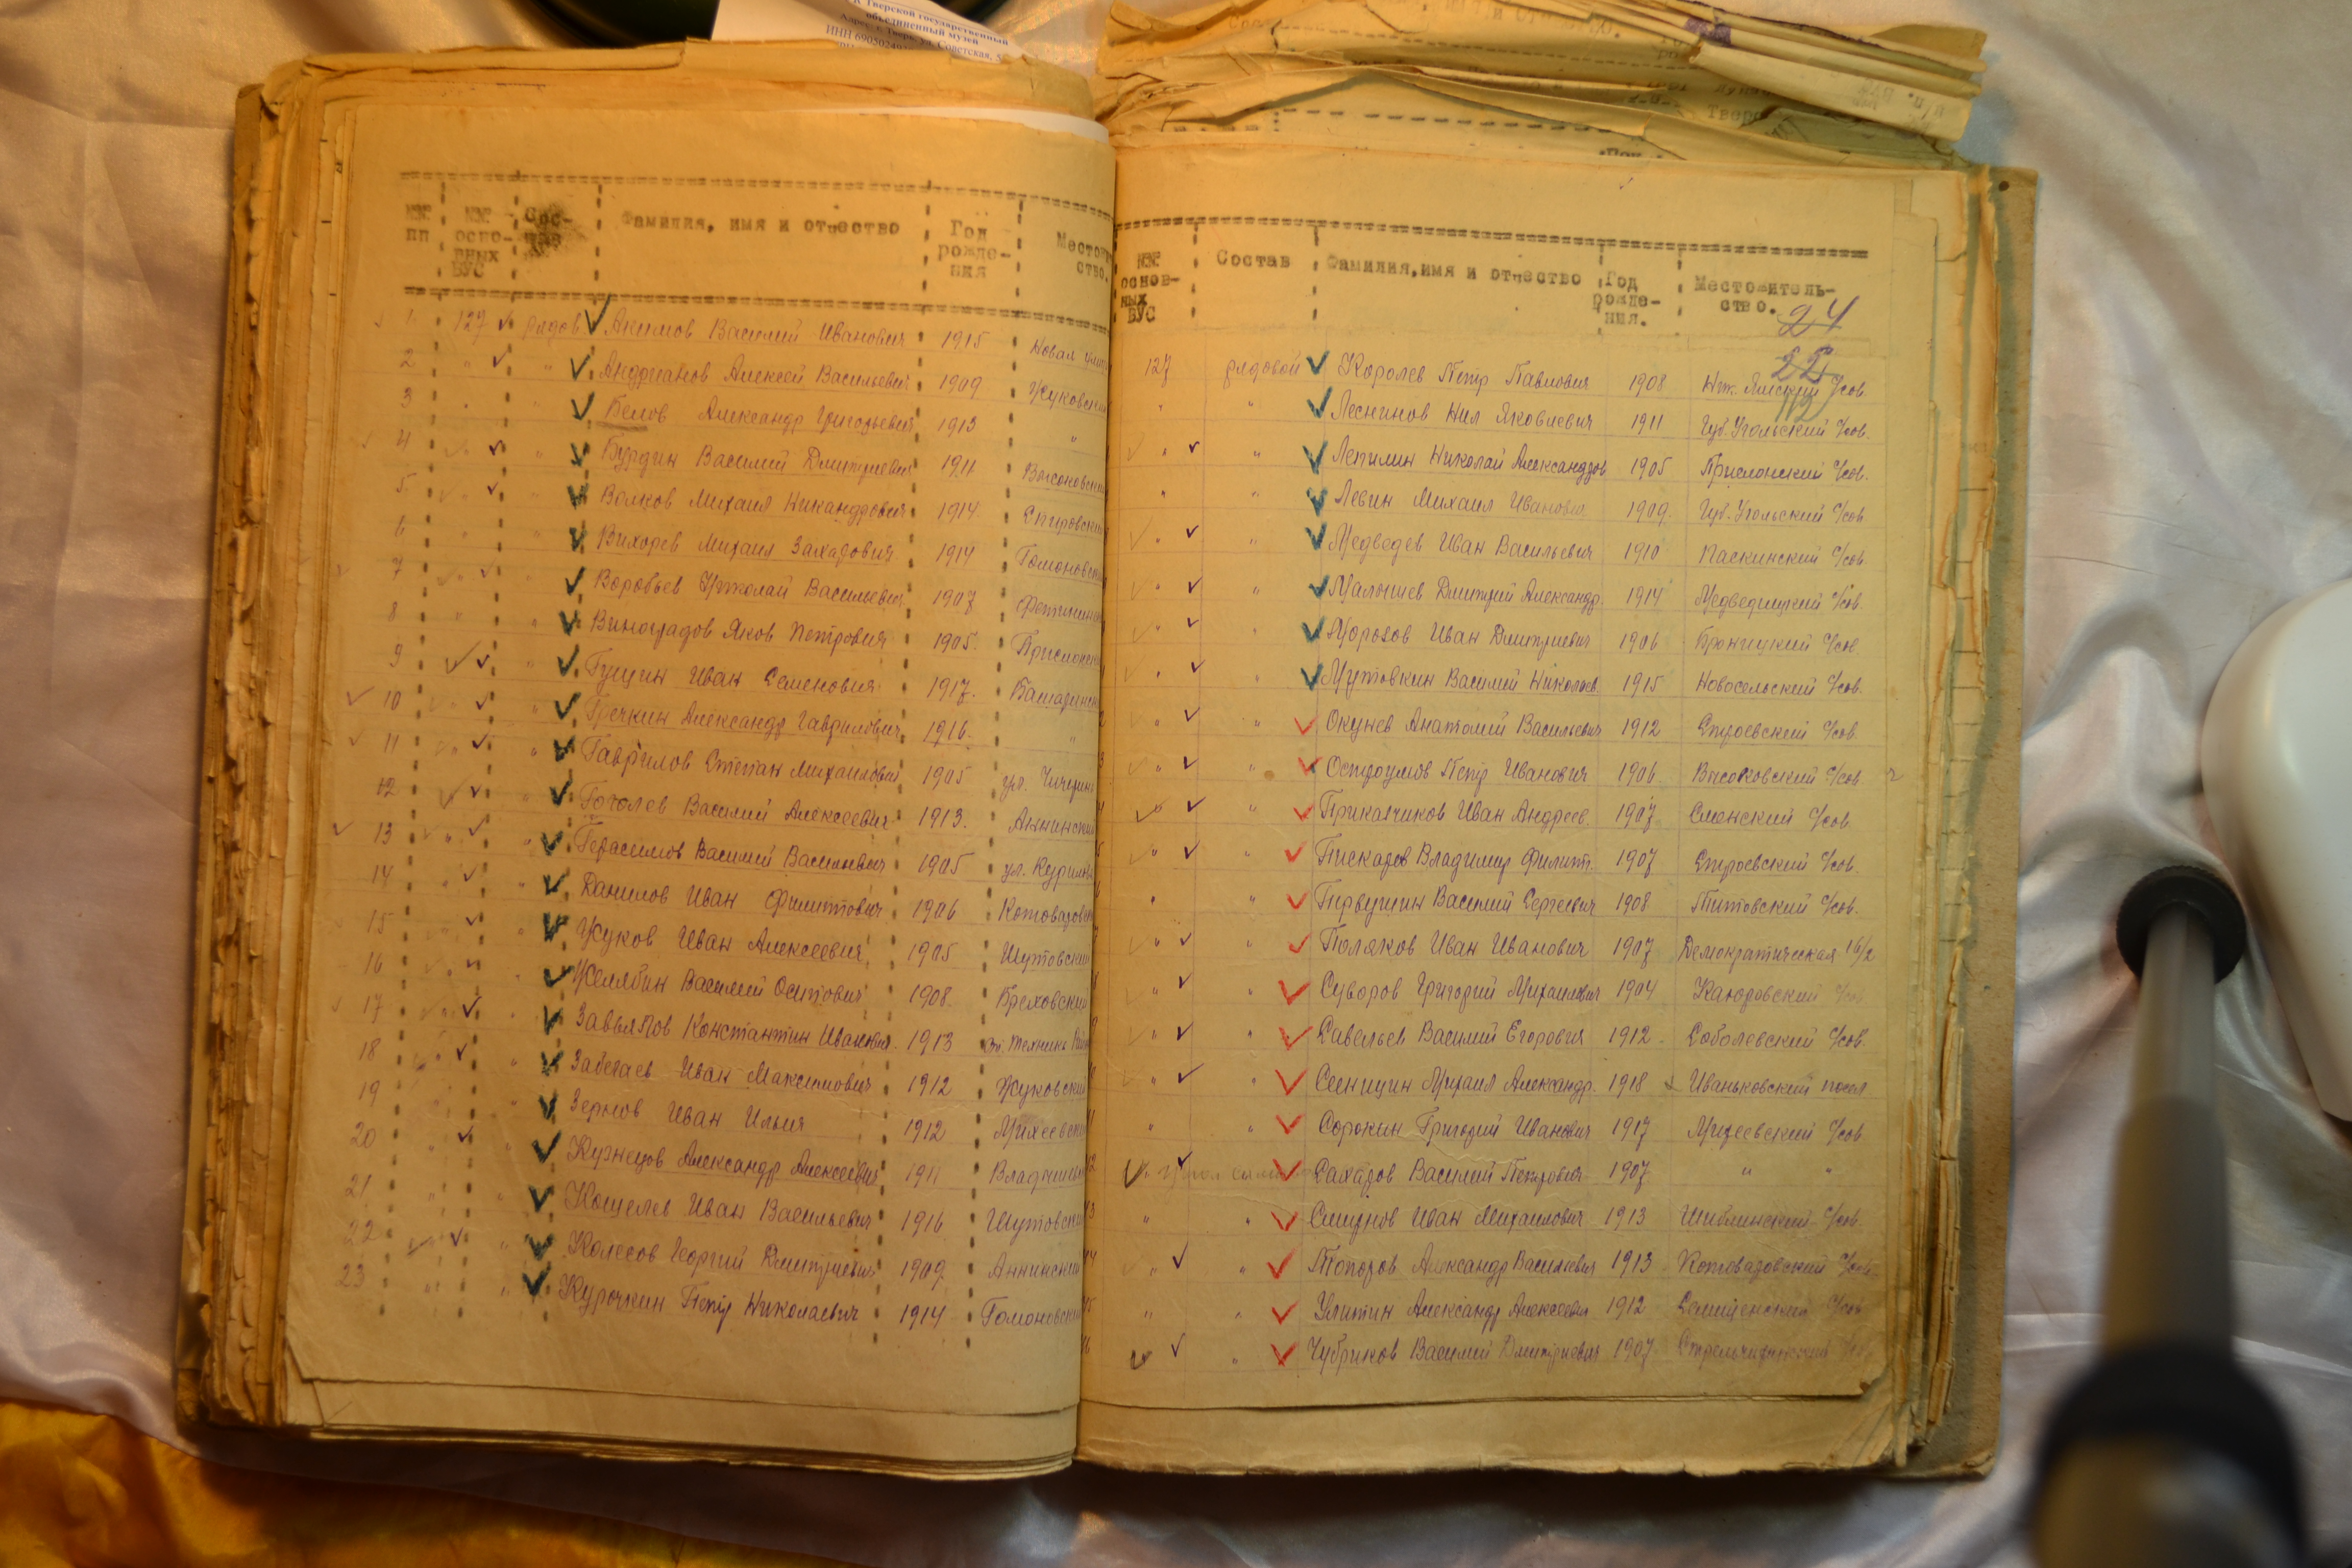 Тверской государственный
объединенный музей
Адрес: г. Тверь, ул. Советская, 5
ИНН 690502494
№№ пп | №№ осно-вных ВУС | Сос-тав | Фамилия, имя и отчество | Год рожде-ния | Местож ство.
1 127 рядов. Акимов Василий Иванович 1915 Новая
2 " " Андрианов Алексей Васильевич 1909 Жуковски
3 " " Белов Александр Григорьевич 1913 "
4 " " Бурдин Василий Дмитриевич 1911 Высоковски
5 " " Волков Михаил Никандрович 1914 Спировски
6 " " Вихорев Михаил Захарович 1914 Гомоновск
7 " " Воробьев Николай Васильевич 1907
8 " " Виноградов Яков Петрович 1905 Прислонск
9 " Гущин Иван Семенович 1917.
10 " " Гречкин Александр Гаврилович 1916. "
11 " " Гаврилов Степан Михайлович 1905 ул. Чичерин
12 " Гоголев Василий Алексеевич 1913. Аннински
13 " " Герасимов Василий Васильевич 1905 ул.
14 " " Данилов Иван Филиппович 1906 Котовазовск
15 " " Жуков Иван Алексеевич 1905 Шутовски
16 " " Желябин Василий Осипович 1908. Бреховский
17 " " Завьялов Константин Иванович 1913
18 " " Забегаев Иван Максимович 1912 Жуковский
19 " Зернов Иван Ильич 1912 Михеевск
20 " " Кузнецов Александр Алексеевич 1911
21 " " Кощелев Иван Васильевич 1916 Шутовски
22 " " Колесов Георгий Дмитриевич 1909 Аннински
23 " " Курочкин Петр Николаевич 1914 Гомоновски
№№ основ-ных ВУС | Состав | Фамилия, имя и отчество | Год рожде-ния. | Местожитель-ство.
24
22
112
127 рядовой Королев Петр Павлович 1908 Ник. Ямский С/сов.
" " Леснинов Нил Яковлевич 1911 Губ. Угольский С/сов.
" " Лепилин Николай Александров 1905 Прислонский С/сов.
" " Левин Михаил Иванович 1909 Губ. Угольский С/сов
" " Медведев Иван Васильевич 1910 Паскинский С/сов
" " Малышев Дмитрий Александр. 1914 Медведицкий С/сов.
" " Морозов Иван Дмитриевич 1906 Броницкий С/сов.
" " Мутовкин Василий Николаев. 1915 Новосельский С/сов.
" " Окунев Анатолий Васильевич 1912 Строевский С/сов
" " Остроумов Петр Иванович 1906 Высоковский С/сов
" " Приказчиков Иван Андреев. 1907 Сменский С/сов.
" " Пискарев Владимир Филипп. 1907 Строевский С/сов.
" " Первушин Василий Сергеевич 1908 Титовский С/сов.
" " Поляков Иван Иванович 1907 Демократическая 16/2
" " Суворов Григорий Михайлович 1904 Каюровский С/сов
" " Савельев Василий Егорович 1912 Соболевский С/сов.
" " Сеницин Михаил Александр. 1918 Иваньковский посел
" " Сорокин Григорий Иванович 1917 Михеевский С/сов
" Сахаров Василий Петрович 1907 " "
" " Смирнов Иван Михайлович 1913 Шиблинский С/сов
" " Топоров Александр Васильевич 1913 Котовазовский С/сов
" " Улитин Александр Алексеевич 1912 Селищенский С/сов
" " Чубриков Василий Дмитриевич 1907